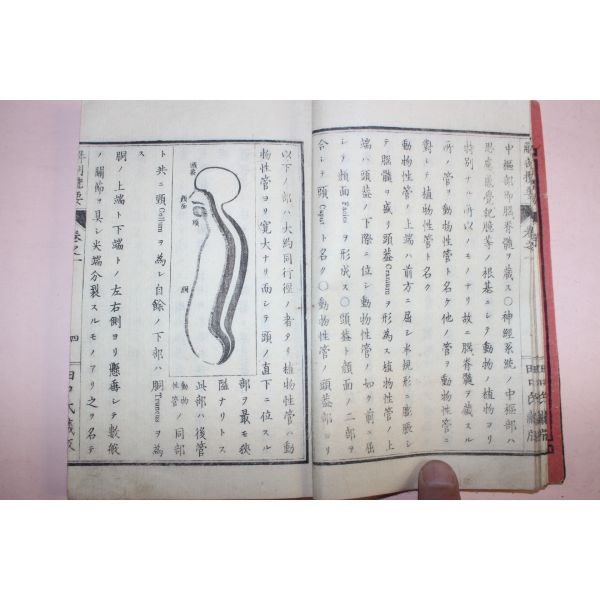 中樞部即腦脊髓ヲ藏ス〇神經系統ノ中樞部ハ
思慮感覺記臆等ノ根基ニシテ動物ノ植物ヨリ
特別ナル所以ノモノナリ故ニ腦脊髓ヲ藏スル
所ノ管ヲ動物性管ト名ケ他ノ管ヲ植物性管ニ
對シテ植物性管ト名ク
動物性管ノ上端ハ前方ニ屈シ半規形ニ膨脹シ
テ腦髓ヲ盛リ頭蓋Craniumヲ形為ス植物性管ノ上
端ハ頭蓋ノ下際ニ位シ動物性管ノ如ク前ニ屈
シテ顏面Faciesヲ形成ス〇頭蓋ト顏面ノ二部ヲ
合シテ頭Caputト名ク〇動物性管ノ頭部ヨリ
以下ノ部ハ大約同行徑ノ者タリ植物性管ハ動
物性管ヨリ寛大ナリ而シテ頭ノ直下ニ位スル
部ヲ最モ狹
隘ナリトス
此部ハ後管
動物性管ノ同部
ト共ニ頸Collumヲ為シ自餘ノ下部ハ胴Truncusヲ為ス
胴ノ上端ト下端トノ左右側ヨリ懸垂シテ數般
ノ關節ヲ具シ尖端分裂スルモノアリ之ヲ名テ
頭蓋
顏面
頸
胴
卷之一
四
田中氏藏版